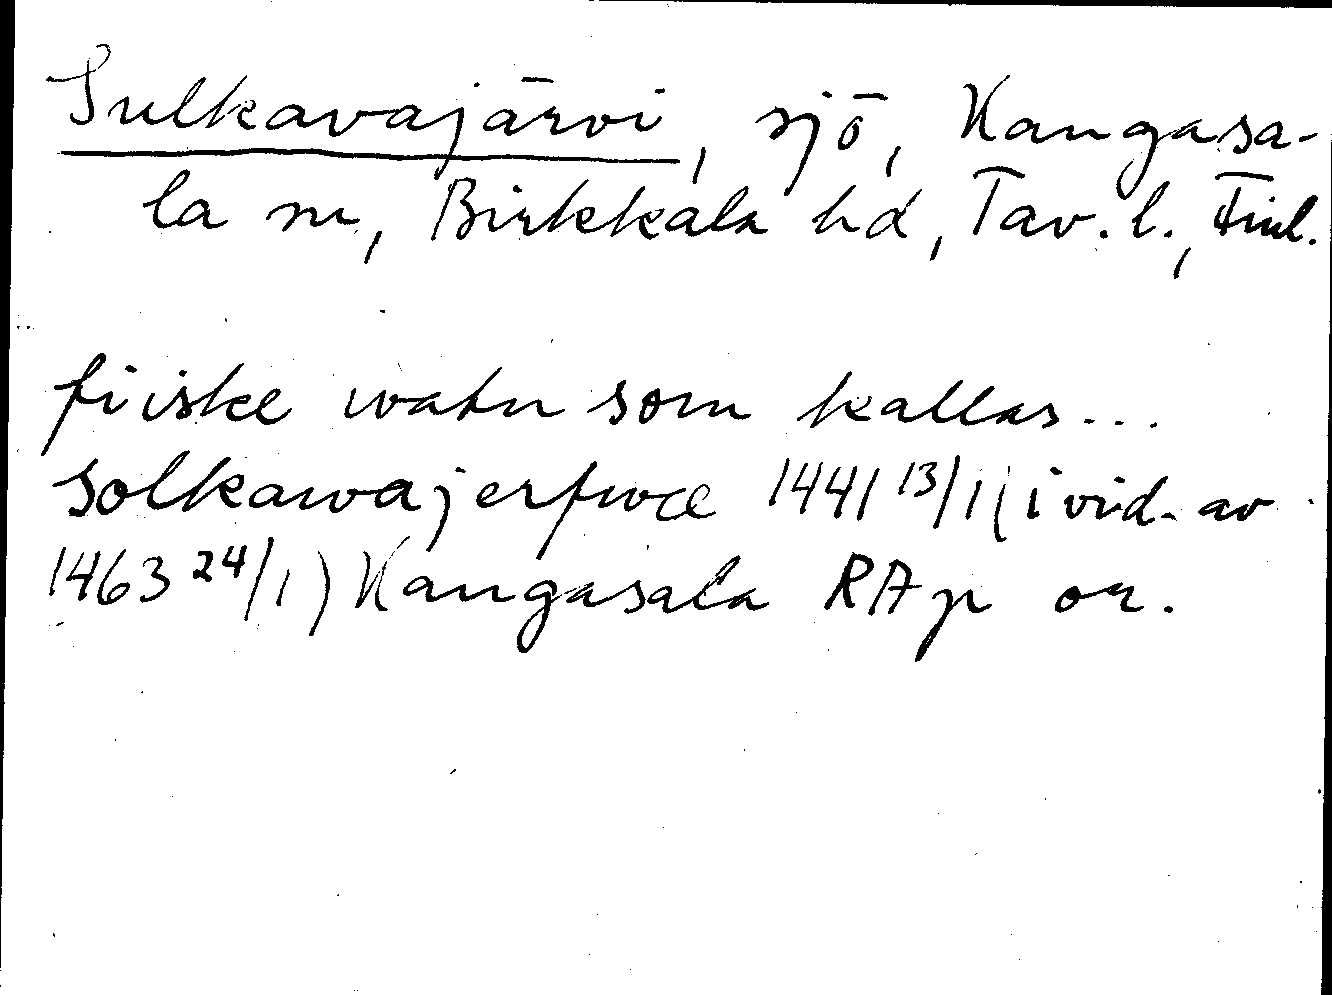 Sulkavajärvi, sjö, Kangasa-
la sn, Birkkala hd, Tav. l., Finl.
fiiske watn som kallas...
solkawajerfwce 1441 13/1 (i vid. av
1463 24/1) Kangasala RAp or.